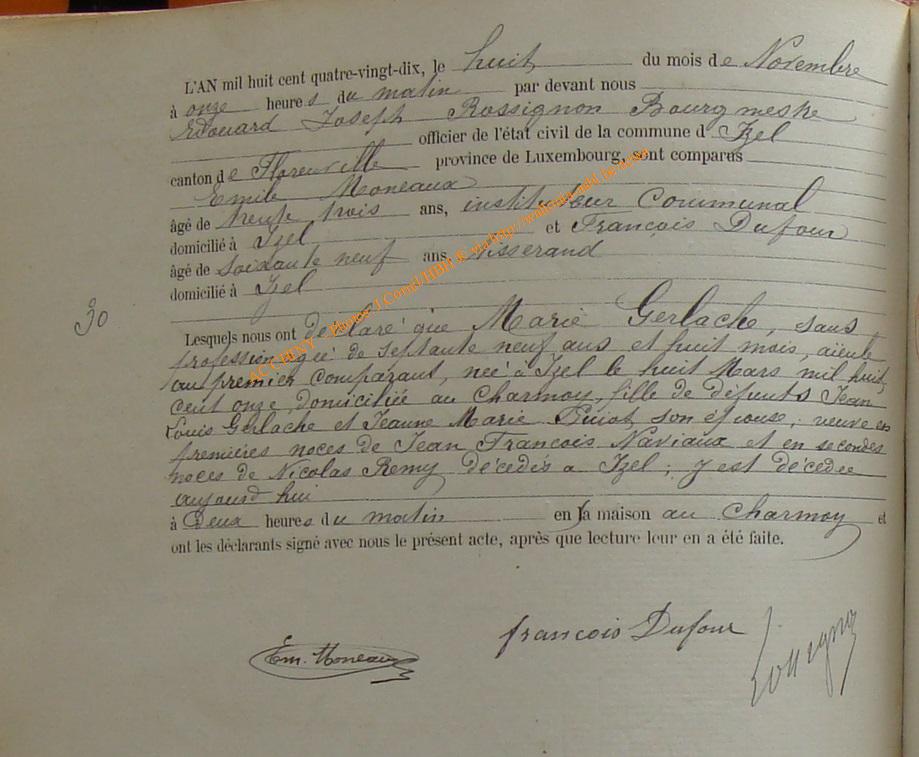 L'AN mil huit cent quatre-vingt-dix, le huit du mois de Novembre
à onze heures du matin par devant nous
Edouard Joseph Rossignon Bourgmestre
officier de l'état civil de la commune d'Izel
canton de Florenville province de Luxembourg, sont comparus
Emile Moneaux
âgé de trente trois ans, instituteur Communal
domicilié à Izel et François Dufour
âgé de soixante neuf ans, tisserand
domicilié à Izel
30
Lesquels nous ont déclaré que Marie Gerlache, sans
profession agée de septante neuf ans et huit mois, aïeule
au premier comparant, née à Izel le huit Mars mil huit
cent onze, domiciliée au Charmoy, fille de défunts Jean
Louis Gerlache et Jeanne Marie son épouse; veuve en
premières noces de Jean François Naviaux et en secondes
noces de Nicolas Remy décédés à Izel; y est décédée
aujourd'hui
à Deux heures du matin en la maison au Charmoy et
ont les déclarants signé avec nous le présent acte, après que lecture leur en a été faite.
Em. Moneaux
françois Dufour
Rossignon